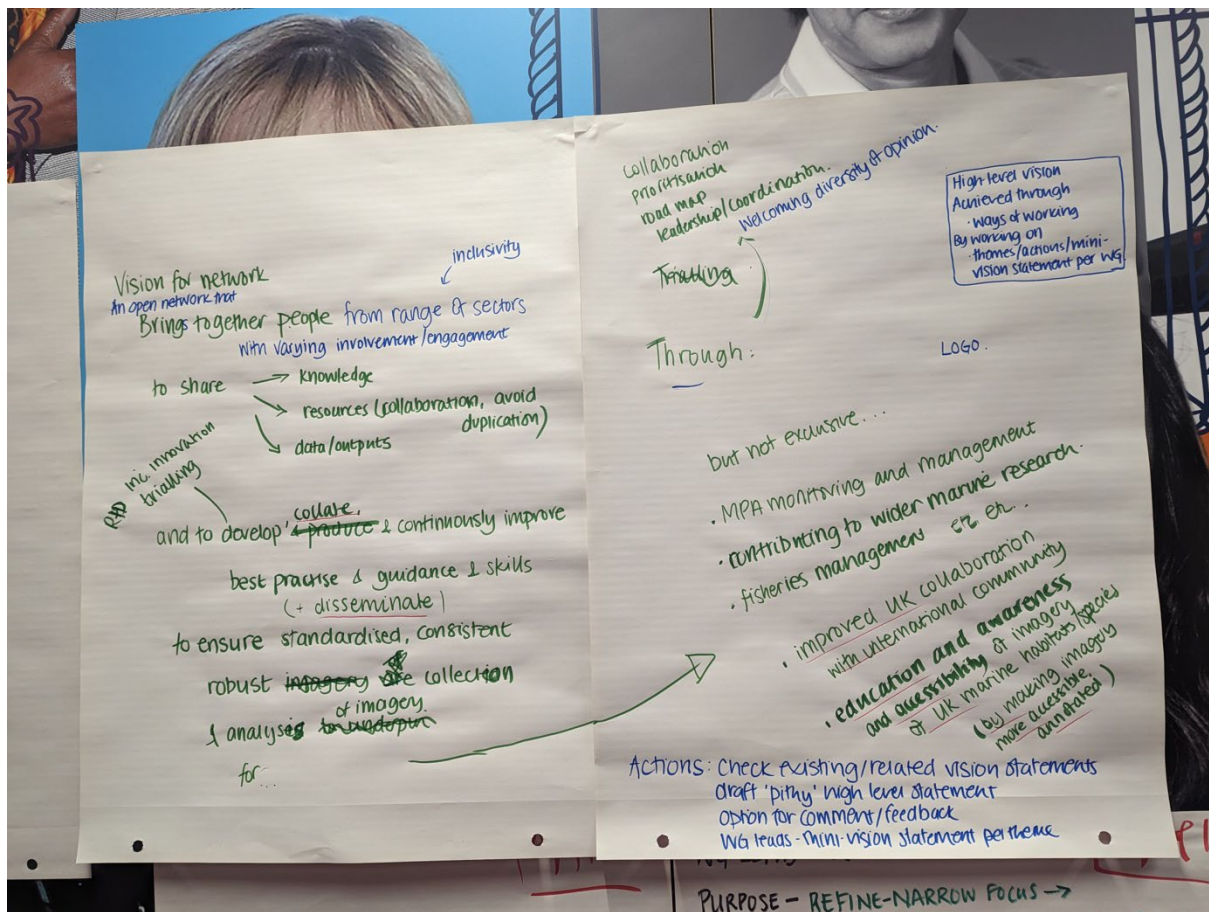 inclusivity
Vision for network
An open network that
Brings together people from range of sectors
with varying involvement/engagement
to share
knowledge
resources (collaboration, avoid
duplication)
data/outputs
R+D inc. innovation
trialling
collate,
and to develop, & produce & continuously improve
best practise & guidance & skills
(+ disseminate)
to ensure standardised, consistent
robust imagery collection
of imagery.
& analysis to underpin
for...
collaboration
prioritisation
road map
leadership/coordination.
welcoming diversity of opinion.
Trialling
Through:
High level vision
Achieved through
· ways of working
By working on
· themes/actions/mini-
vision statement per WG
LOGO.
but not exclusive...
· MPA monitoring and management
· contributing to wider marine research.
· fisheries management etc etc..
· improved UK collaboration
with international community
· education and awareness
and accessibility of imagery
of UK marine habitats/species
(by making imagery
more accessible,
annotated)
Actions: Check existing/related vision statements
draft 'pithy' high level statement
Option for comment/feedback
WG leads - mini-vision statement per theme
PURPOSE - REFINE-NARROW FOCUS →